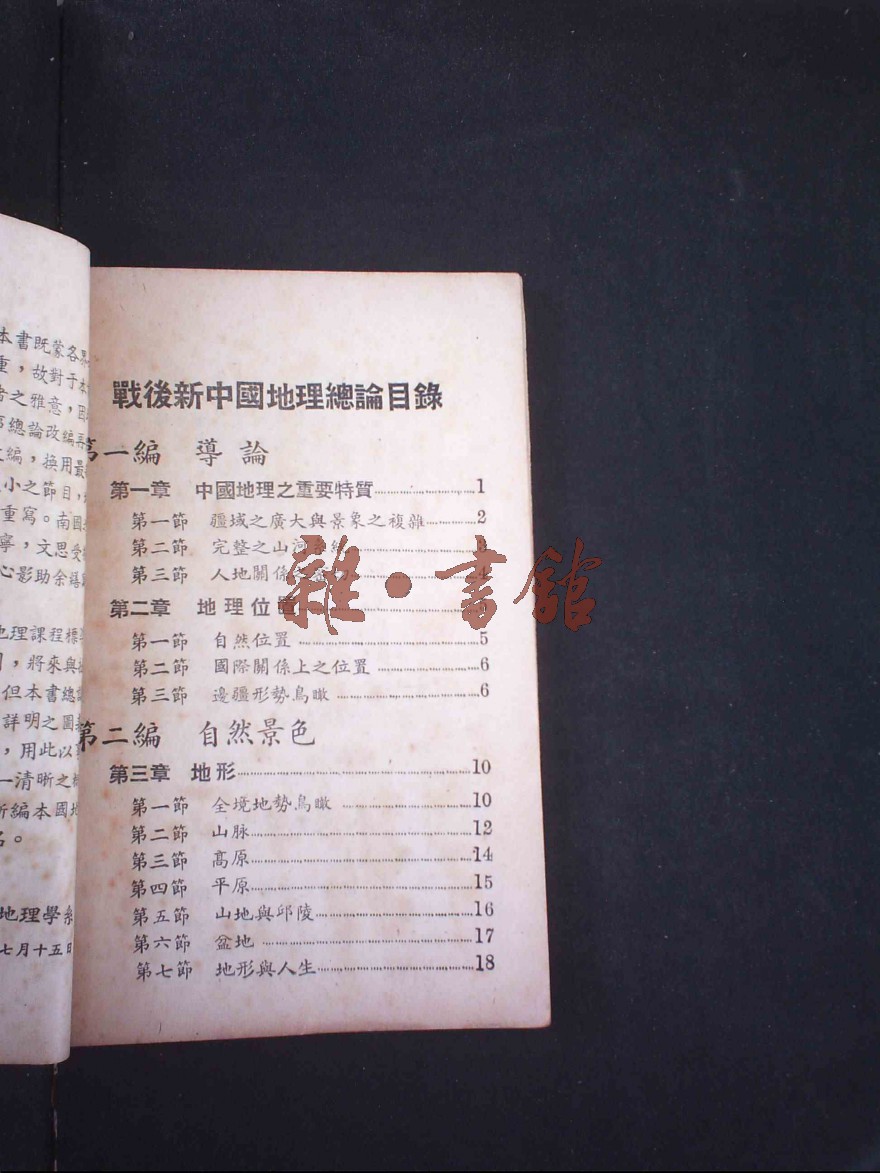 本書既蒙各
重，故對于本
者之雅意，因
總論改編再
編，換用最
小之節目，
重寫。南國
寧，文思受
心影助余繕
地理課程標
，將來與
但本書總
詳明之圖
，用此以
一清晰之
新編本國地
名。
地理學系
七月十五日
戰後新中國地理總論目錄
第一編 導論
第一章 中國地理之重要特質 1
第一節 疆域之廣大與景象之複雜 2
第二節 完整之山河 3
第三節 人地關係 4
第二章 地理位置
第一節 自然位置 5
第二節 國際關係上之位置 6
第三節 邊疆形勢鳥瞰 6
第二編 自然景色
第三章 地形 10
第一節 全境地勢鳥瞰 10
第二節 山脉 12
第三節 高原 14
第四節 平原 15
第五節 山地與邱陵 16
第六節 盆地 17
第七節 地形與人生 18
雜·書館